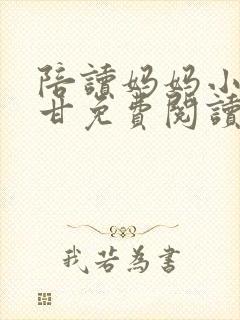 陪讀媽媽小
甘免費閱讀
我若為書